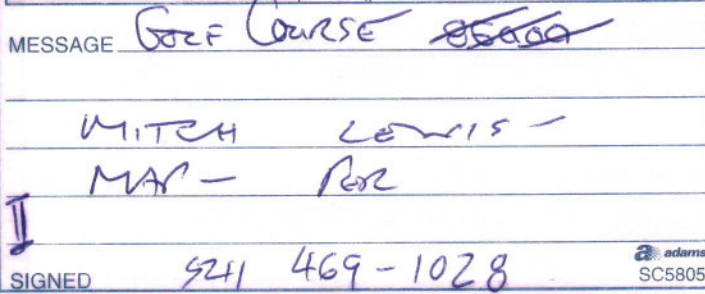 MESSAGE GOLF COURSE
MITCH LEWIS -
MAP - PER
II
SIGNED 5241 469-1028
a adams
SC5805